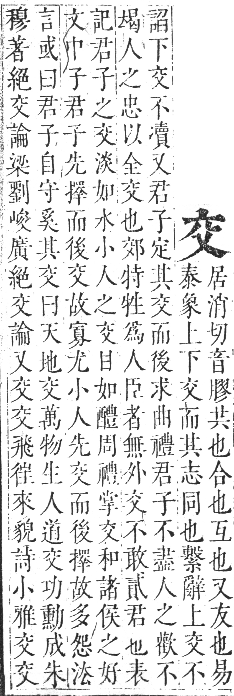 交
居消切音膠共也合也互也又友也易
泰象上下交而其志同也繫辭上交不
諂下交不瀆又君子定其交而後求曲禮君子不盡人之歡不
竭人之忠以全交也郊特牲爲人臣者無外交不敢貳君也表
記君子之交淡如水小人之交甘如醴周禮掌交和諸侯之好
文中子君子先擇而後交故寡尤小人先交而後擇故多怨法
言或曰君子自守奚其交曰天地交萬物生人道交功勳成朱
穆著絕交論梁劉峻廣絕交論又交交飛徃來貌詩小雅交交